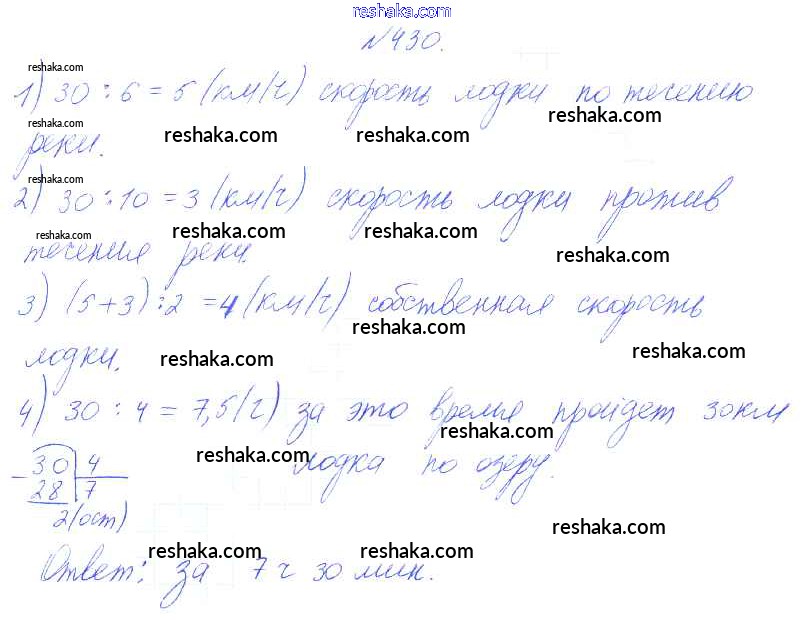 reshaka.com
№430.
reshaka.com
1) 30 : 6 = 5 (км/ч) скорость лодки по течению
reshaka.com
reshaka.com reshaka.com reshaka.com
реки.
reshaka.com
2) 30 : 10 = 3 (км/ч) скорость лодки против
reshaka.com reshaka.com reshaka.com
течения реки.
reshaka.com
3) (5+3) : 2 = 4 (км/ч) собственная скорость
reshaka.com
лодки. reshaka.com reshaka.com
4) 30 : 4 = 7,5 (ч) за это время пройдет 30км
reshaka.com
reshaka.com
лодка по озеру.
30 4
- 28 7
2 (ост)
reshaka.com
reshaka.com reshaka.com
Ответ: за 7 ч 30 мин.